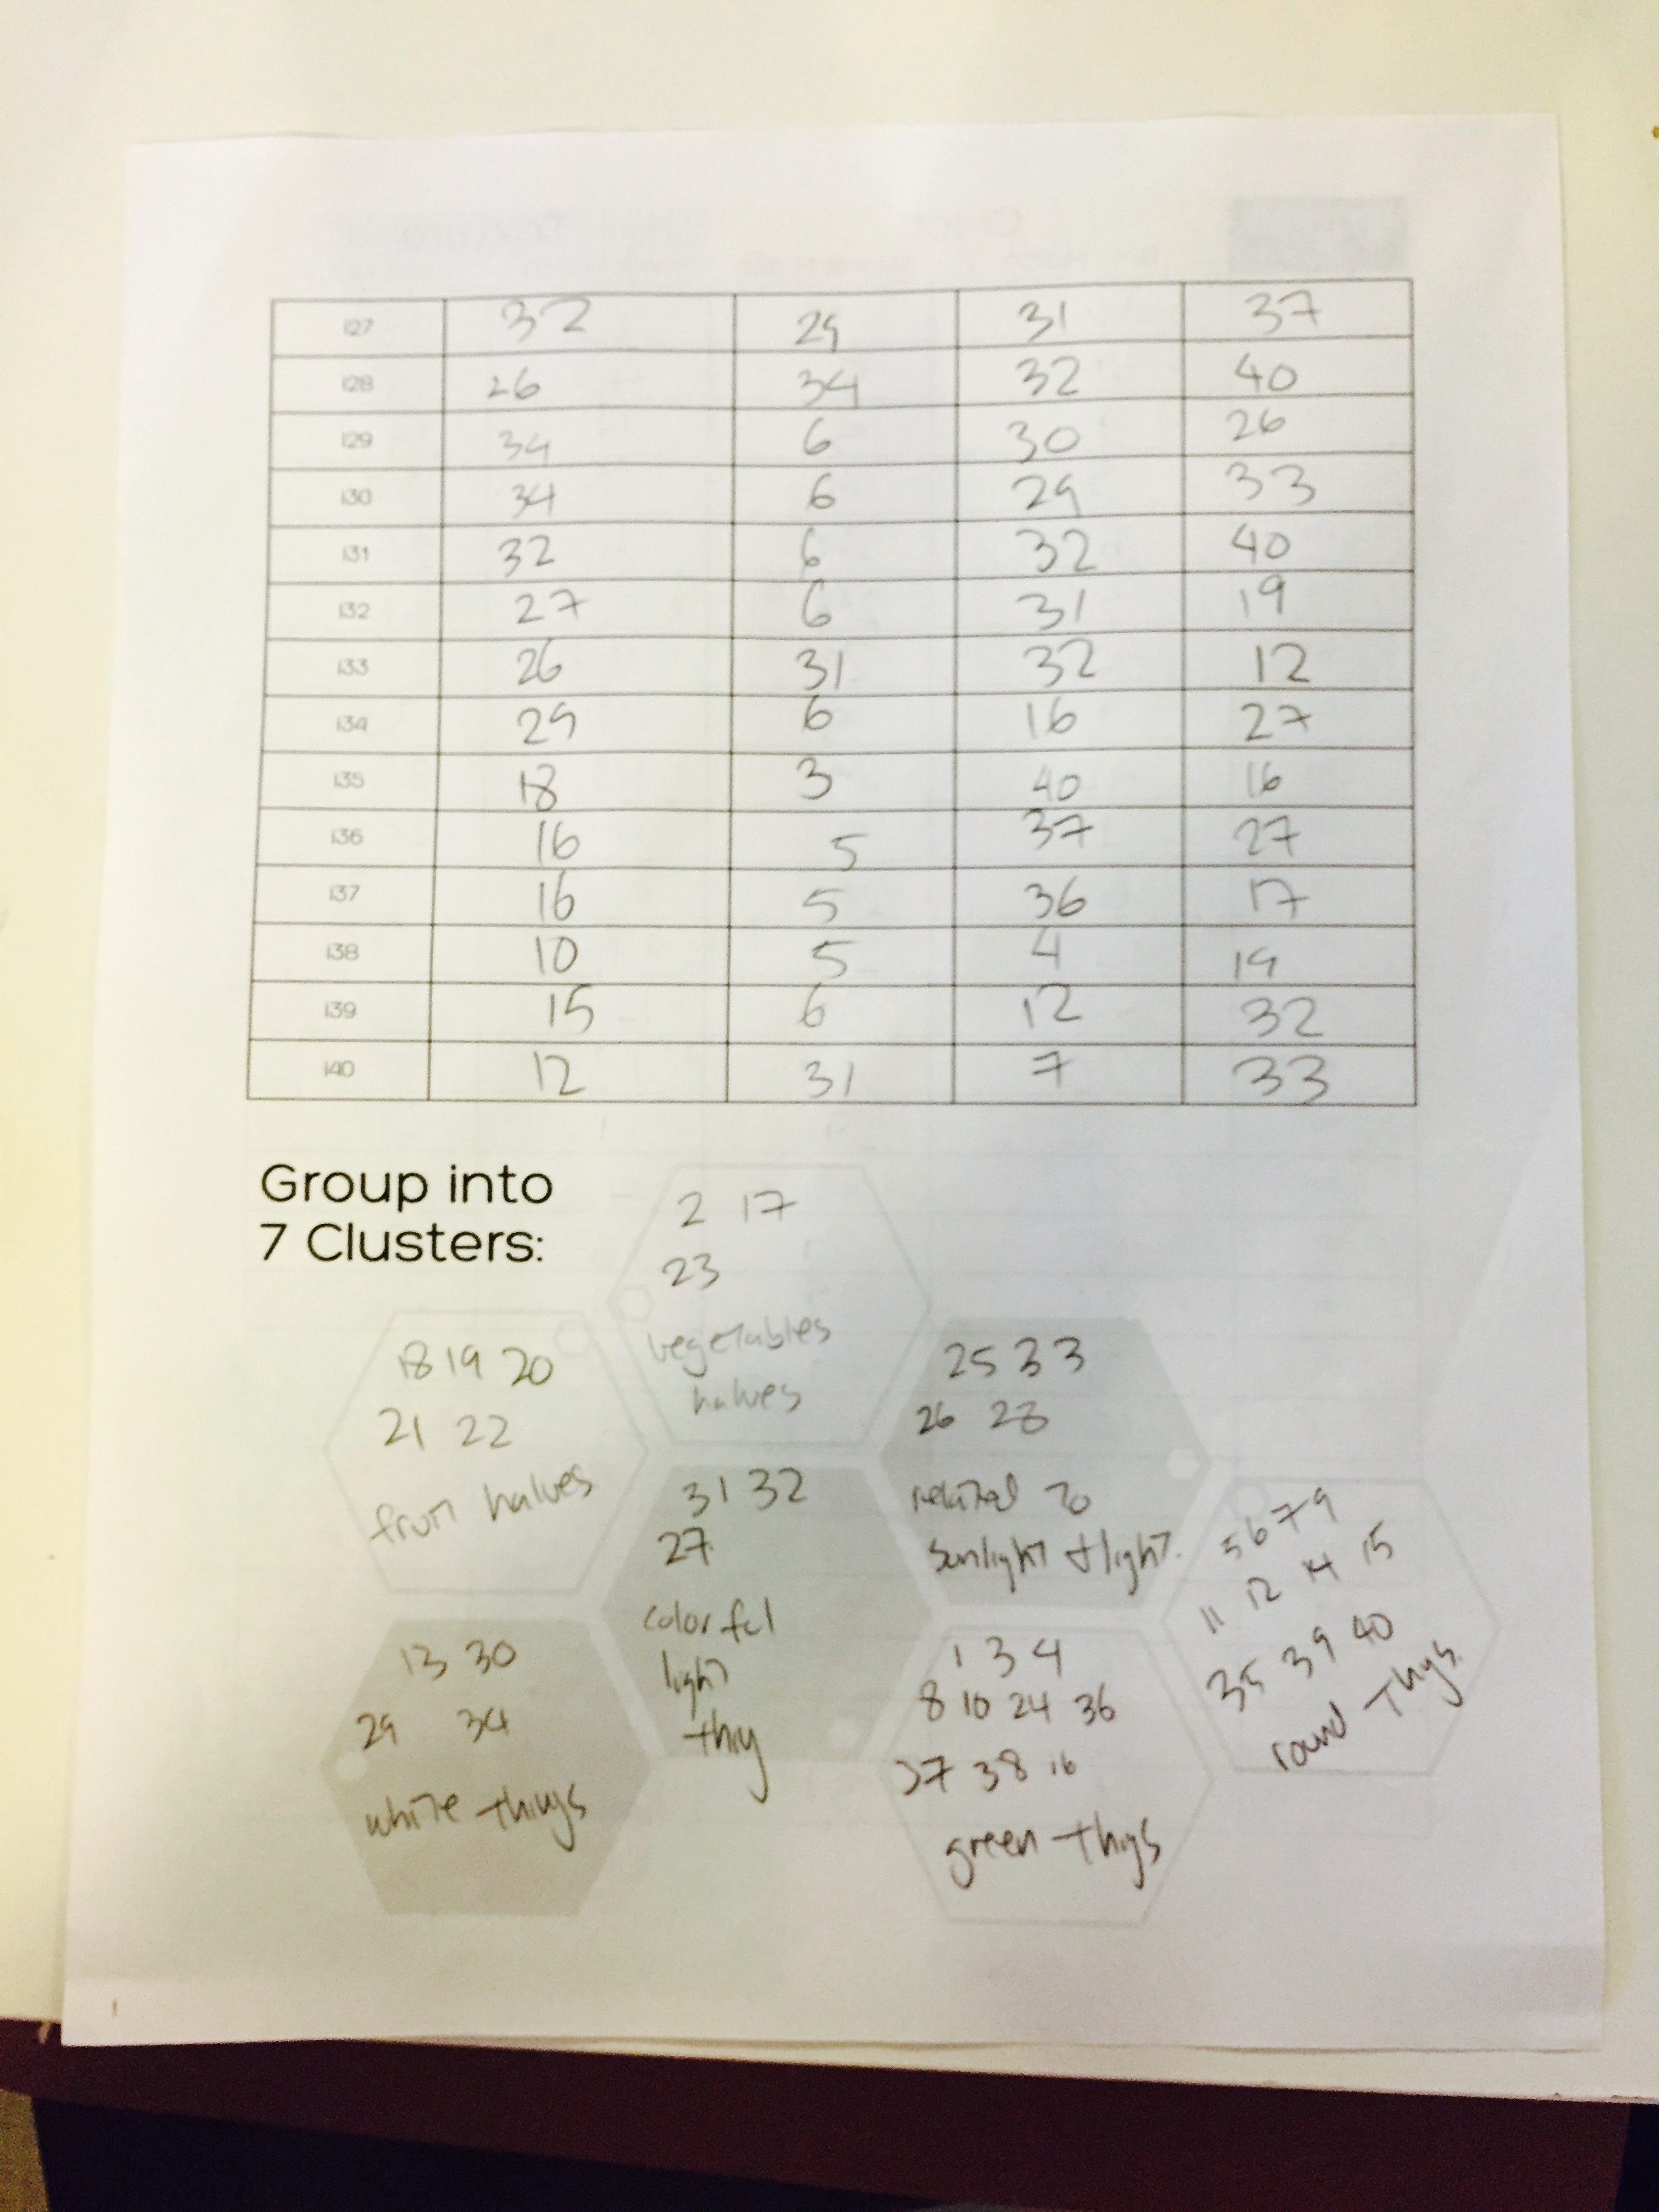 i27 32 29 31 37
i28 26 34 32 40
i29 34 6 30 26
i30 34 6 29 33
i31 32 6 32 40
i32 27 6 31 19
i33 26 31 32 12
i34 29 6 16 27
i35 18 3 40 16
i36 16 5 37 27
i37 16 5 36 17
i38 10 5 4 19
i39 15 6 12 32
i40 12 31 7 33
Group into
7 Clusters:
2 17
23
vegetables
halves
18 19 20
21 22
fruit halves
25 33
26 28
related to
sunlight + light.
31 32
27
colorful
light
thig
5 6 7 9
11 12 14 15
35 39 40
round thigs
13 30
29 34
white things
1 3 4
8 10 24 36
37 38 16
green thigs